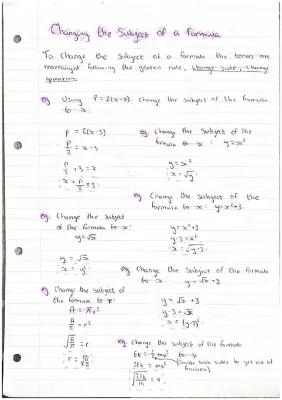 Changing the Subject of a Formula
To change the subject of a formula the terms are
rearranged following the general rule, change side, change
operation.
eg Using P = 2(x-3) change the subject of the formula
to x.
P = 2(x-3)
P/2 = x-3
P/2 + 3 = x
x = P/2 + 3
eg. Change the subject of the
formula to x : y=x²
y = x²
x = √y
eg Change the subject of the
formula to x: y=x²+3.
y = x²+3
y-3 = x²
x = √y-3
eg. Change the subject
of the formula to x:
y=√x
y = √x
x = y²
eg Change the subject of the formula
to x y=√x+3
y = √x +3
y-3 = √x
x = (y-3)²
eg Change the subject of
the formula to r:
A = πr²
A/π = r²
√A/π = r
r = √A/π
eg. Change the subject of the formula
Ek = ½mv² to v
2Ek = mv² (Double both sides to get rid of
fraction)
√2Ek/m = v